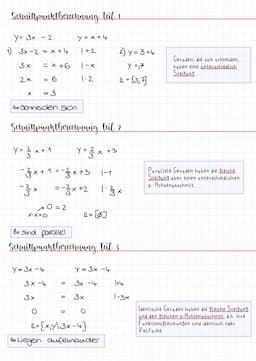 Schnittpunktberechnung Teil 1
y = 3x - 2   y = x + 4
1) 3x - 2 = x + 4   | + 2
3x = x + 6   | - x
2x = 6   | : 2
x = 3
2) y = 3 + 4
y = 7
L = {3,7}
Geraden, die sich schneiden,
haben eine unterschiedliche
Steigung
Schneiden sich
Schnittpunktberechnung Teil 2
y = 2/3 x + 1   y = 2/3 x + 3
- 2/3 x + 1 = - 2/3 x + 3   | - 1
- 2/3 x = - 2/3 x + 2   | · 2/3 x
0 = 2
x - x = 0
L = {Ø}
Parallele Geraden haben die gleiche
Steigung aber einen unterschiedlichen
y-Achsenabschnitt.
sind parallel
Schnittpunktberechnung Teil 3
y = 3x - 4   y = 3x - 4
3x - 4 = 3x - 4   | + 4
3x = 3x   | - 3x
0 = 0
L = {x;y\3x-4}
Identische Geraden haben die gleiche Steigung
und den gleichen y-Achsenabschnitt, d.h. ihre
Funktionsgleichungen sind identisch oder
Vielfache
Liegen aufeinander